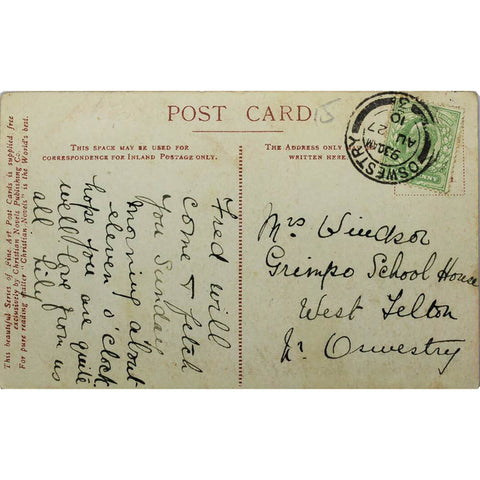 POST CARD
15
THIS SPACE MAY BE USED FOR
CORRESPONDENCE FOR INLAND POSTAGE ONLY.
THE ADDRESS ONLY
WRITTEN HERE.
This beautiful Series of Fine Art Post Cards is supplied free
exclusively by Christian Novels Publishing Co.
For pure reading Stories "Christian Novels" is the World's best.
Fred will
come & fetch
you Sunday
morning about
eleven o'clock
hope you are quite
well love from us
all Lily
OSWESTRY
9.30AM
AU 27
10
Mrs Windsor
Grimpo School House
West Felton
Nr Oswestry